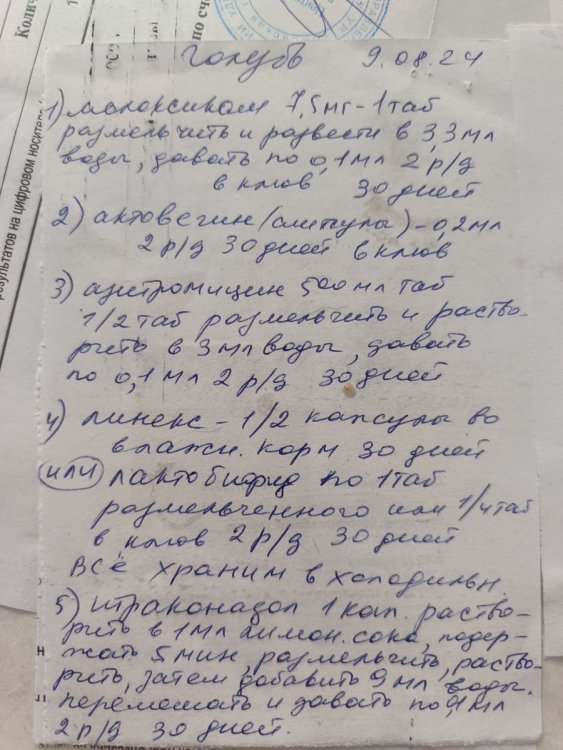 Голубь 9.08.24
1) мелоксикам 7,5мг - 1 таб
размельчить и развести в 3,3 мл
воды, давать по 0,1 мл 2 р/д
в клюв 30 дней
2) актовегин (ампулы) - 0,2 мл
2 р/д 30 дней в клюв
3) азитромицин 500 мл таб
1/2 таб размельчить и раство-
рить в 3 мл воды, давать
по 0,1 мл 2 р/д 30 дней
4) линекс - 1/2 капсулы во
влажн. корм 30 дней
или лактобифид по 1 таб
размельченного или 1/4 таб
в клюв 2 р/д 30 дней
Всё храним в холодильн
5) итраконазол 1 кап. раство-
рить в 1 мл лимон. сока, подер-
жать 5 мин, размельчить, раство-
рить, затем добавить 9 мл воды.
перемешать и давать по 0,1 мл
2 р/д 30 дней.
результатов на цифровом носителе
Количе
по сч